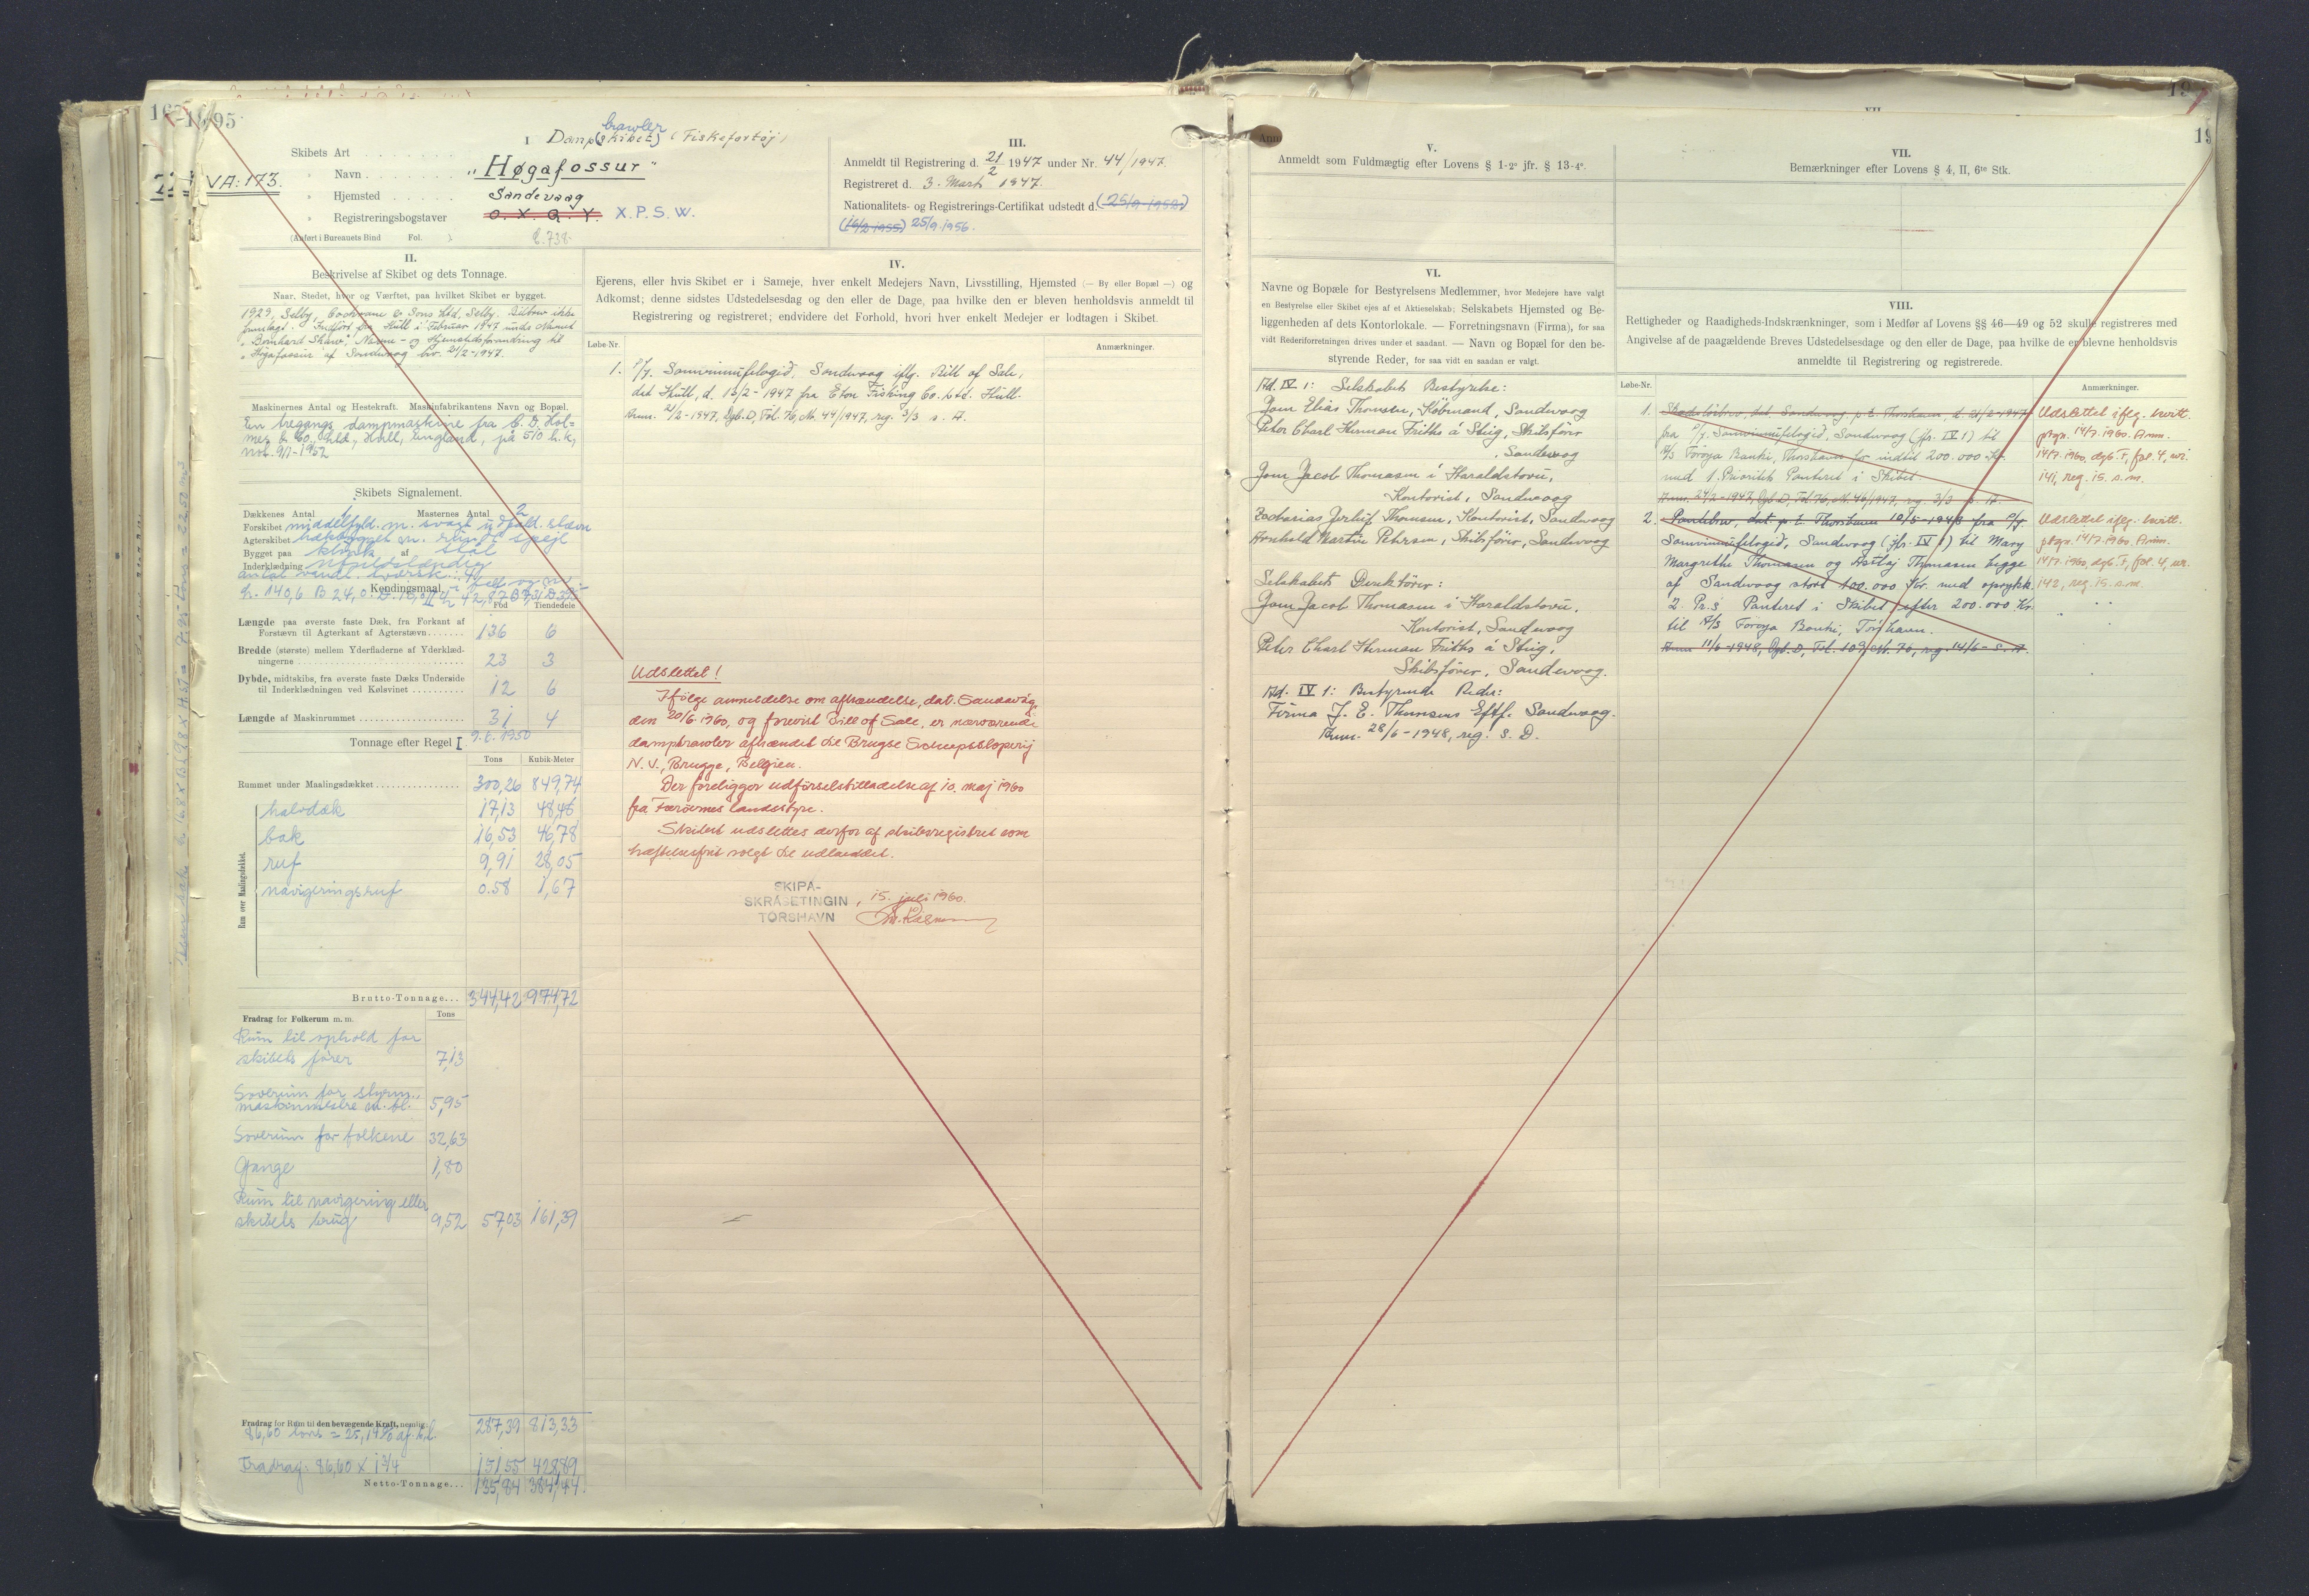 195
I
Damp(skibet) trawler (Fiskefartøj)
Skibets Art
" Navn "Høgafossur"
VA: 173.
" Hjemsted Sandevaag
" Registreringsbogstaver O. X. Q. Y. X.P.S.W.
(Anført i Bureauets Bind Fol. ).
III.
Anmeldt til Registrering d. 21/2 1947 under Nr. 44/1947
Registreret d. 3. Marts 1947.
Nationalitets- og Registrerings-Certifikat udstedt d. (25/9 1952)
(16/2 1955) 25/9.1956.
II.
Beskrivelse af Skibet og dets Tonnage.
Naar, Stedet, hvor og Værftet, paa hvilket Skibet er bygget.
1929, Selby, Cochrane & Sons Ltd, Selby. Bilbrev ikke
fremlagt. Indført fra Hull i Februar 1947 under Navnet
"Bernhard Shaw", Navne- og Hjemstedsforandring til
"Høgafossur" af Sandevaag 21/2-1947.
Maskinernes Antal og Hestekraft. Maskinfabrikantens Navn og Bopæl.
En tregangs dampmaskine fra C. D. Hol=
mes & Co. Ltd., Hull, England, på 510 h.k.,
not. 9/1-1952
Skibets Signalement.
Dækkenes Antal 1 Masternes Antal 2
Forskibet middelfyld. m. svagt udfald. stævn
Agterskibet hækbygget m. rundt spejl
Bygget paa klink af stål
Inderklædning ufuldstændig
antal vandt. tværsk. 4
Kendingsmaal
Fod Tiendedele
Længde paa øverste faste Dæk, fra Forkant af
Forstævn til Agterkant af Agterstævn 136 6
Bredde (største) mellem Yderfladerne af Yderklæd-
ningerne 23 3
Dybde, midtskibs, fra øverste faste Dæks Underside
til Inderklædningen ved Kølsvinet 12 6
Længde af Maskinrummet 31 4
Tonnage efter Regel I 9.6.1950
Tons Kubik-Meter
Rummet under Maalingsdækket 300,26 849,74
Rum over Maalingsdækket.
halvdæk 17,13 48,48
bak 16,53 46,78
ruf 9,91 28,05
navigeringsruf 0.58 1,67
Brutto-Tonnage... 344,42 974,72
Fradrag for Folkerum m. m. Tons
Rum til ophold for
skibets fører 7,13
Soverum for styrm.,
maskinmestre m.fl. 5,95
Soverum for folkene 32,63
Gange 1,80
Rum til navigering eller
skibets brug 9,52 57,03 161,39
Fradrag for Rum til den bevægende Kraft, nemlig: 287,39 813,33
86,60 tons = 25,14% af b.t.
Fradrag: 86,60 x 1 3/4 151,55 428,89
Netto-Tonnage... 135,84 384,44
IV.
Ejerens, eller hvis Skibet er i Sameje, hver enkelt Medejers Navn, Livsstilling, Hjemsted (— By eller Bopæl —) og
Adkomst; denne sidstes Udstedelsesdag og den eller de Dage, paa hvilke den er bleven henholdsvis anmeldt til
Registrering og registreret; endvidere det Forhold, hvori hver enkelt Medejer er lodtagen i Skibet.
Løbe-Nr. Anmærkninger.
1. P/f. Samvinnufelagið, Sandevaag iflg. Bill of Sale,
dat. Hull, d. 13/2-1947 fra Eton Fishing Co. Ltd. Hull.
Anm. 21/2-1947, Dgb. D, Fol. 76, Nr. 44/1947, reg. 3/3 s. A.
Udslettet!
Ifølge anmeldelse om afhændelse, dat. Sandavåg,
den 20/6.1960, og forevist Bill of Sale, er nærværende
damptrawler afhændet til Brugse Scheepssloperij
N.V., Brugge, Belgien.
Der foreligger udførselstilladelse af 10. maj 1960
fra Færøernes landsstyre.
Skibet udslettes derfor af skibsregistret som
hæftelsesfrit solgt til udlandet.
SKIPA-
SKRÁSETINGIN, 15. juli 1960.
TÓRSHAVN
V.
Anmeldt som Fuldmægtig efter Lovens § 1-2° jfr. § 13-4°.
VI.
Navne og Bopæle for Bestyrelsens Medlemmer, hvor Medejere have valgt
en Bestyrelse eller Skibet ejes af et Aktieselskab; Selskabets Hjemsted og Be-
liggenheden af dets Kontorlokale. — Forretningsnavn (Firma), for saa
vidt Rederiforretningen drives under et saadant. — Navn og Bopæl for den be-
styrende Reder, for saa vidt en saadan er valgt.
Ad. IV 1: Selskabets Bestyrelse:
Joen Elias Thomsen, Købmand, Sandevaag
Peter Charl Herman Friths á Stig, Skibsfører
, Sandevaag
Joen Jacob Thomasen i Haraldstovu,
Kontorist, Sandevaag
Zacharias Jerluf Thomsen, Kontorist, Sandevaag
Arnbold Martin Petersen, Skibsfører, Sandevaag
Selskabets Direktører:
Joen Jacob Thomasen i Haraldstovu,
Kontorist, Sandevaag
Peter Charl Herman Friths á Stig,
Skibsfører, Sandevaag.
Ad. IV 1: Bestyrende Reder:
Firma J. E. Thomsens Eftf. Sandevaag.
Anm. 28/6-1948, reg. s. D.
VII.
Bemærkninger efter Lovens § 4, II, 6te Stk.
VIII.
Rettigheder og Raadigheds-Indskrænkninger, som i Medfør af Lovens §§ 46—49 og 52 skulle registreres med
Angivelse af de paagældende Breves Udstedelsesdag og den eller de Dage, paa hvilke de er blevne henholdsvis
anmeldte til Registrering og registrerede.
Løbe-Nr. Anmærkninger.
1. Skadesløsbrev, dat. Sandevaag p.t. Thorshavn, d. 21/2-1947
fra P/f. Samvinnufelagið, Sandevaag (jfr. IV 1) til
A/S Føroya Banki, Thorshavn for indtil 200.000 Kr.
med 1. Prioritets Panteret i Skibet.
Anm. 24/2-1947, Dgb. D, Fol. 76, Nr. 46/1947, reg. 3/3 s. A.
Udslettet iflg. kvitt.
ptgn. 14/7.1960. Anm.
14/7.1960, dgb. F, fol. 4, nr.
141, reg. 15. s.m.
2. Pantebrev, dat. p.t. Thorshavn 10/5-1948 fra P/f
Samvinnufelagið, Sandevaag (jfr. IV 1) til Mary
Margrethe Thomasen og Astaj Thomasen begge
af Sandevaag stort 100.000 Kr. med oprykk.
2. Pr.s Panteret i Skibet efter 200.000 Kr.
til A/S Føroya Banki, Tórshavn.
Anm. 11/6-1948, Dgb. D, Fol. 109, Nr. 76, reg. 14/6 s. A.
Udslettet iflg. kvitt.
ptgn. 14/7.1960. Anm.
14/7.1960, dgb. F, fol. 4, nr.
142, reg. 15. s.m.